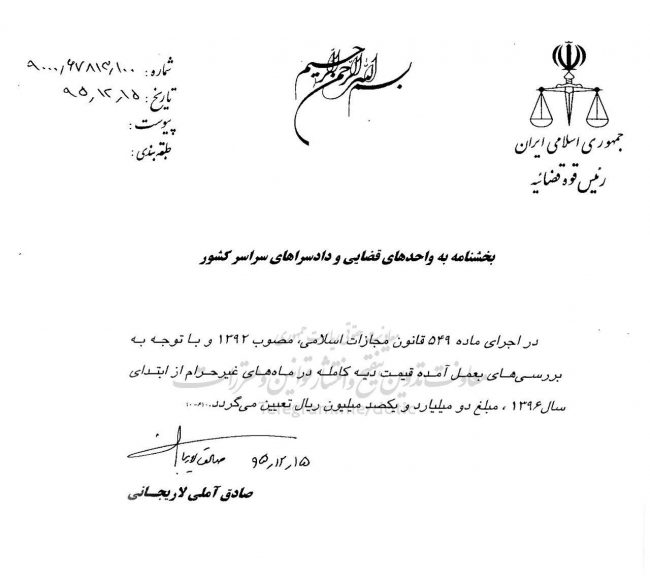 بسم الله الرحمن الرحیم
جمهوری اسلامی ایران
رئیس قوه قضائیه
شماره: ۹۰۰۰/۶۷۸۱۴/۱۰۰
تاریخ: ۹۵/۱۲/۱۵
پیوست:
طبقه‌بندی:
بخشنامه به واحدهای قضایی و دادسراهای سراسر کشور
در اجرای ماده ۵۴۹ قانون مجازات اسلامی، مصوب ۱۳۹۲ و با توجه به
بررسی‌های بعمل آمده قیمت دیه کامله در ماه‌های غیرحرام از ابتدای
سال ۱۳۹۶، مبلغ دو میلیارد و یکصد میلیون ریال تعیین می‌گردد.
معاونت تدوین تنقیح و انتشار قوانین و مقررات
۹۵/۱۲/۱۵
صادق آملی لاریجانی